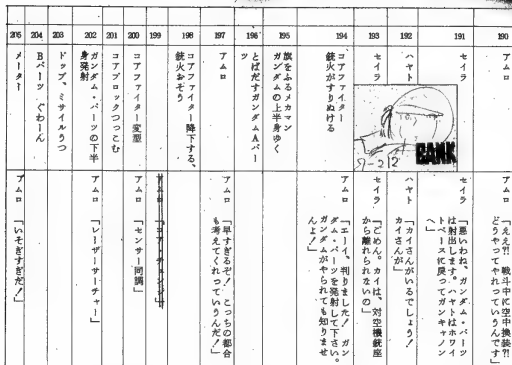 190
アムロ
アムロ
「ええ?! 戦斗中に空中換装?!
どうやってやれっていうんです」
191
セイラ
セイラ
「悪いわね、ガンダム・パーツ
は射出します。ハヤトはホワイ
トベースに戻ってガンキャノン
へ」
192
ハヤト
ハヤト
「カイさんがいるでしょう!
カイさんが」
193
セイラ
セイラ
「ごめん。カイは、対空機銃座
から離れられないの」
BANK
9-212
194
コアファイター
銃火がすりぬける
アムロ
「エーイ、判りました! ガン
ダム・パーツを発射して下さい。
ガンダムがやられても知りませ
んよ!」
195
旗をふるメカマン
ガンダムの上半身ゆく
196
とばだすガンダムAパー
ツ
197
アムロ
アムロ
「早すぎるぞ! こっちの都合
も考えてくれっていうんだ!」
198
コアファイター降下する、
銃火おそう
199
アムロ
アムロ
「コア・チェンジ」
200
コアファイター変型
アムロ
「センサー同調」
201
コアブロックつっこむ
202
ガンダム・パーツの下半
身発射
アムロ
「レーザーサーチャー」
203
ドップ、ミサイルうつ
204
Bパーツ ぐわーん
205
メーター
アムロ
「いそぎすぎだ!」